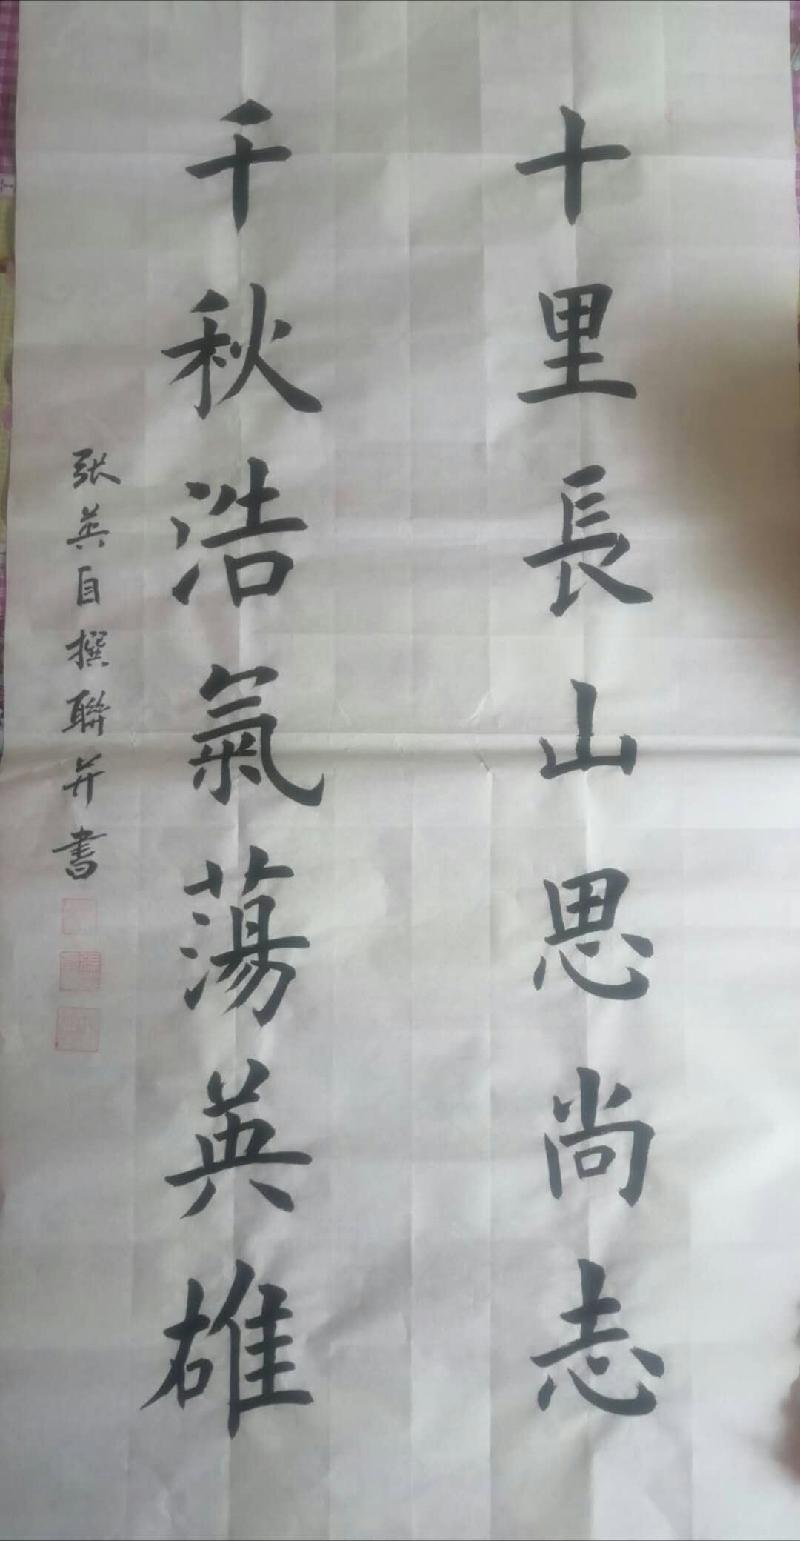 十里長山思尚志
千秋浩氣蕩英雄
张英自撰聯并書